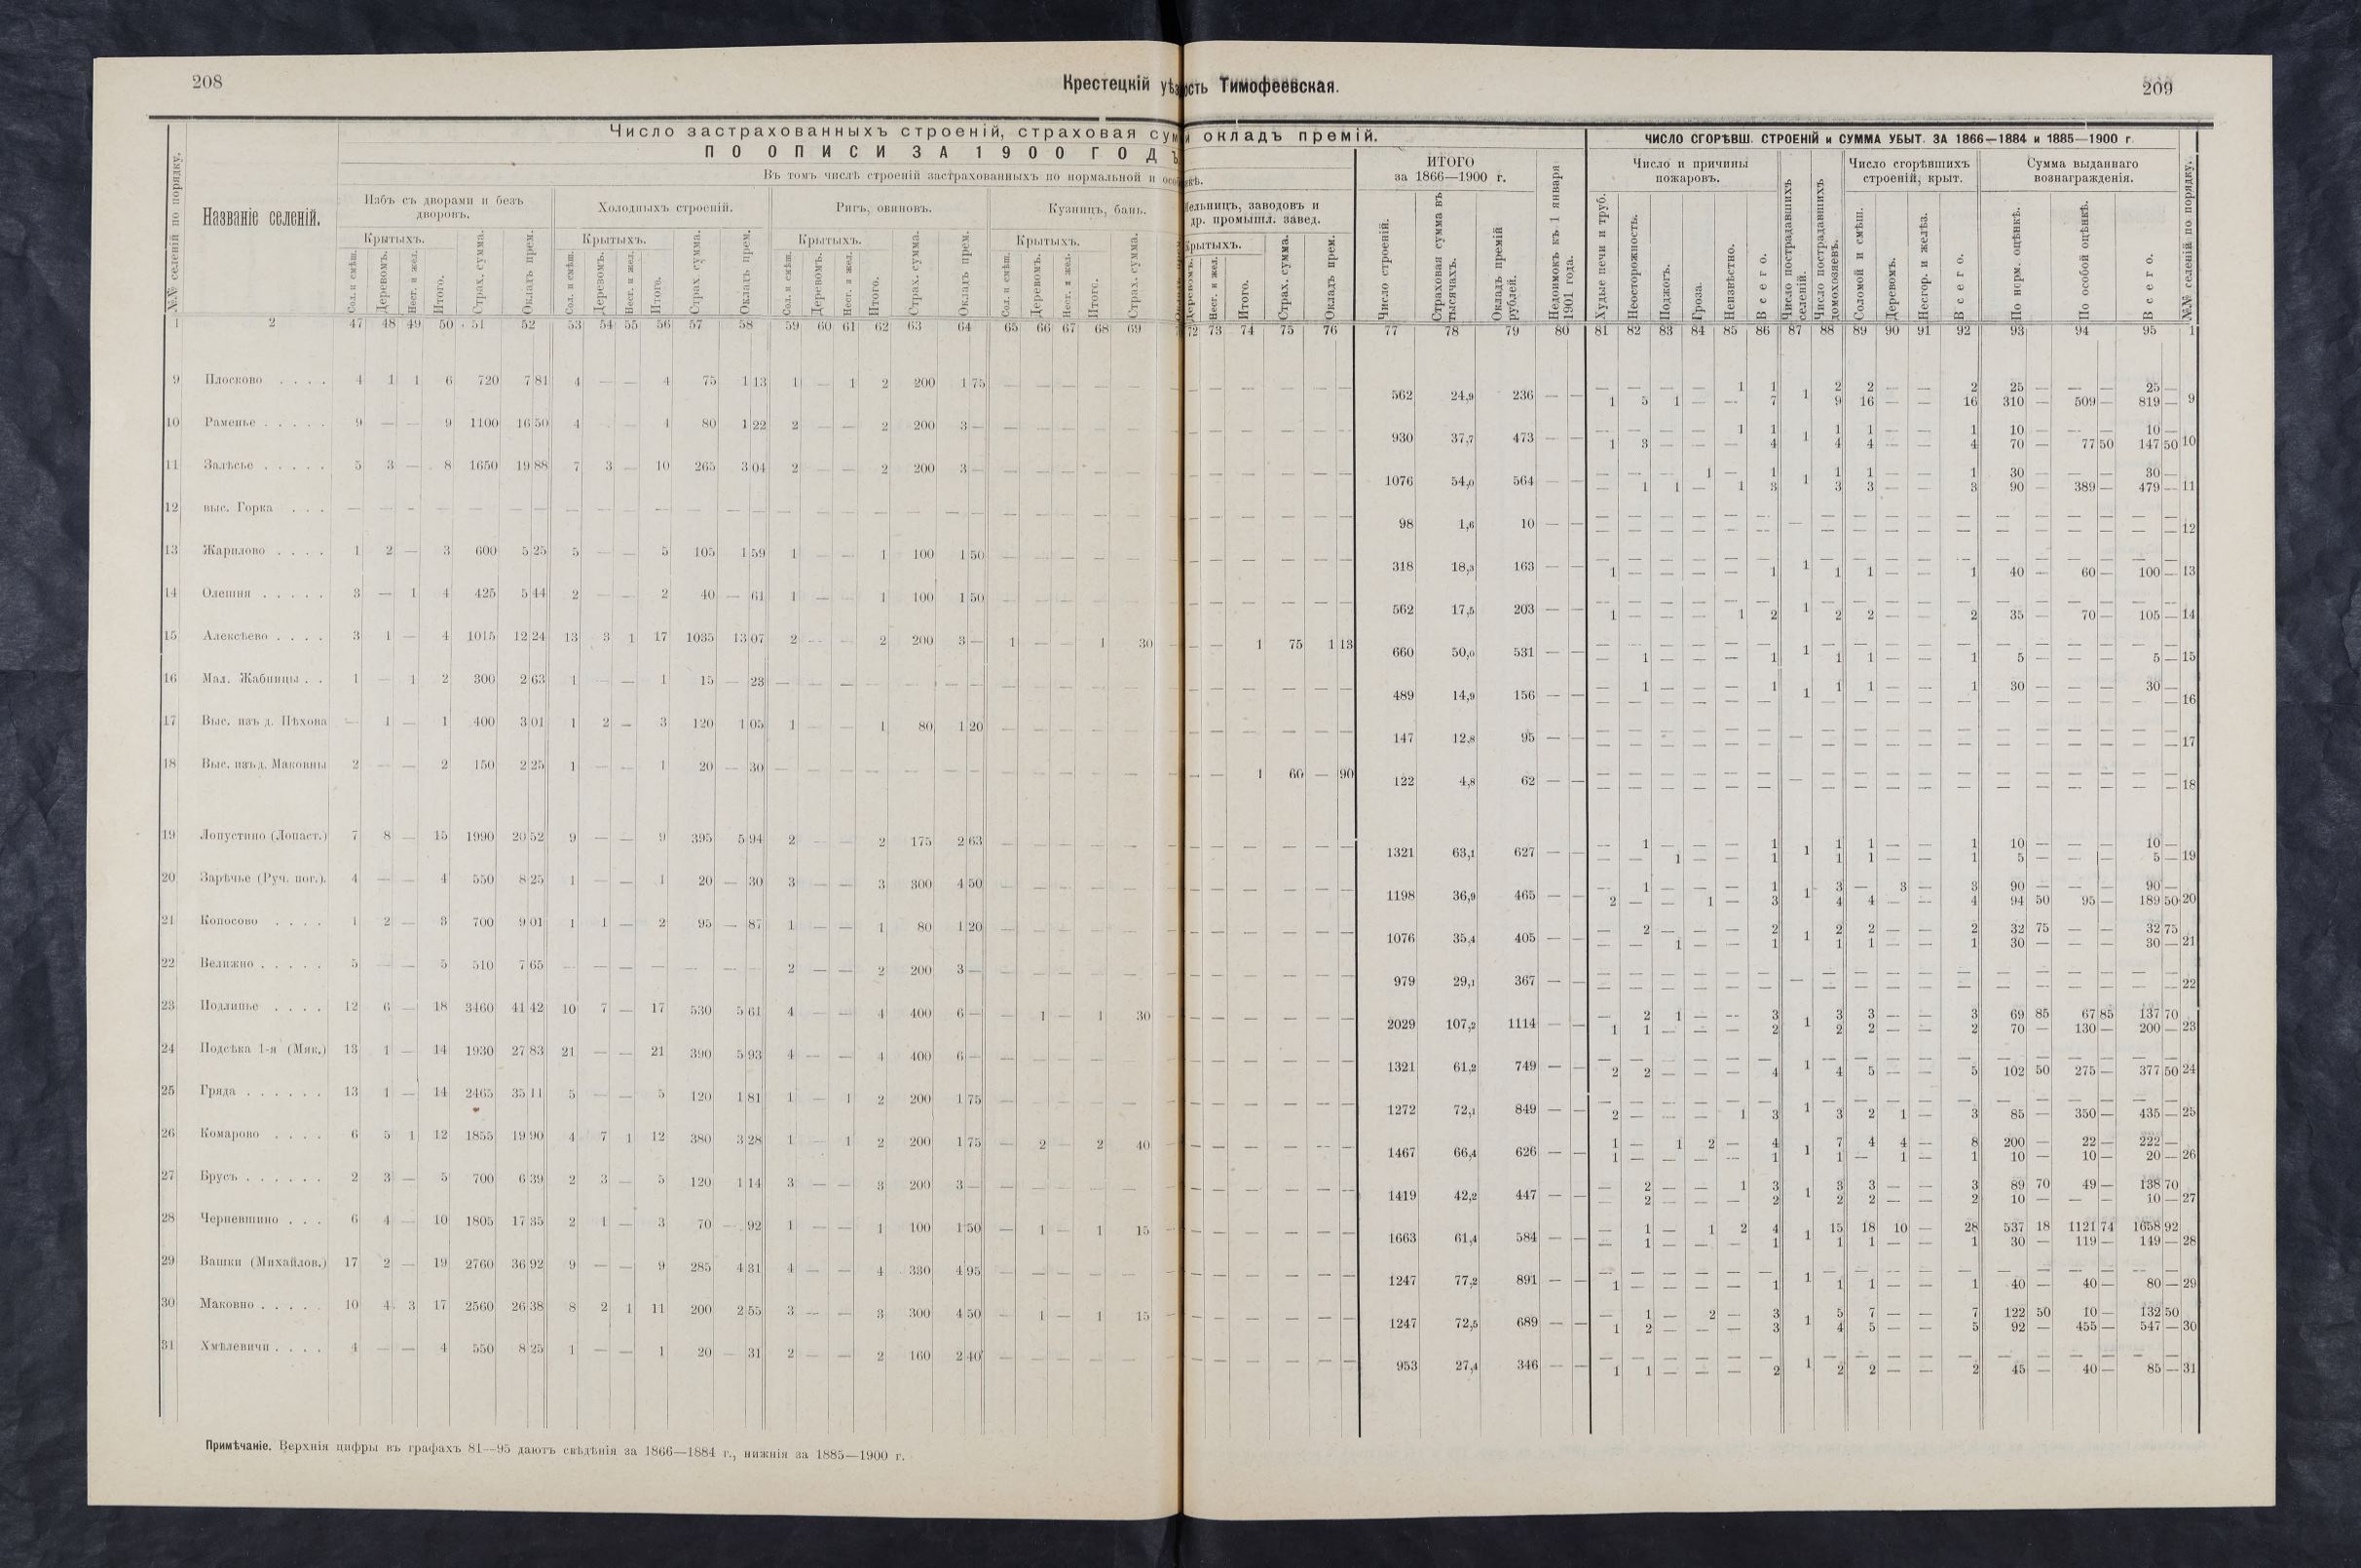 208
Крестецкій уѣз
ость Тимофеевская.
209
Число застрахованныхъ строеній, страховая сум
и окладъ премій.
ПО ОПИСИ ЗА 1900 ГОДЪ
Въ томъ числѣ строеній застрахованныхъ по нормальной и особ
нкѣ.
ИТОГО за 1866—1900 г.
ЧИСЛО СГОРѢВШ. СТРОЕНІЙ и СУММА УБЫТ. ЗА 1866—1884 и 1885—1900 г.
№№ селеній по порядку.
Названіе селеній.
Избъ съ дворами и безъ дворовъ.
Холодныхъ строеній.
Ригъ, овиновъ.
Кузницъ, бань.
Мельницъ, заводовъ и др. промышл. завед.
Число и причины пожаровъ.
Число пострадавшихъ селеній.
Число пострадавшихъ домохозяевъ.
Число сгорѣвшихъ строеній, крыт.
Сумма выданнаго вознагражденія.
№№ селеній по порядку.
Крытыхъ.
Сол. и смѣш. Деревомъ. Несг. и жел. Итого. Страх. сумма. Окладъ прем.
Крытыхъ.
Сол. и смѣш. Деревомъ. Несг. и жел. Итого. Страх. сумма. Окладъ прем.
Крытыхъ.
Сол. и смѣш. Деревомъ. Несг. и жел. Итого. Страх. сумма. Окладъ прем.
Крытыхъ.
Сол. и смѣш. Деревомъ. Несг. и жел. Итого. Страх. сумма.
Крытыхъ.
Деревомъ. Несг. и жел. Итого. Страх. сумма. Окладъ прем.
Число строеній. Страховая сумма въ тысячахъ. Окладъ премій рублей. Недоимокъ къ 1 января 1901 года.
Худые печи и труб. Неосторожность. Поджогъ. Гроза. Неизвѣстно. Всего.
Соломой и смѣш. Деревомъ. Несгор. и желѣз. Всего.
По норм. оцѣнкѣ. По особой оцѣнкѣ. Всего.
1 2 47 48 49 50 51 52 53 54 55 56 57 58 59 60 61 62 63 64 65 66 67 68 69 72 73 74 75 76 77 78 79 80 81 82 83 84 85 86 87 88 89 90 91 92 93 94 95 1
9 Плосково . . . . 4 1 1 6 720 7 81 4 — — 4 75 1 13 1 — 1 2 200 1 75 — — — — — — — — — — 562 24,9 236 — —
— — — — 1 1 1 2 2 — — 2 25 — — — 25 —
1 5 1 — — 7 9 16 — — 16 310 — 509 — 819 — 9
10 Раменье . . . . . 9 — — 9 1100 16 50 4 — — 4 80 1 22 2 — — 2 200 3 — — — — — — — — — — — 930 37,7 473 — —
— — — — 1 1 1 1 1 — — 1 10 — — — 10 —
1 3 — — — 4 4 4 — — 4 70 — 77 50 147 50 10
11 Залѣсье . . . . . 5 3 — 8 1650 19 88 7 3 — 10 265 3 04 2 — — 2 200 3 — — — — — — — — — — — 1076 54,0 564 — —
— — — 1 — 1 1 1 1 — — 1 30 — — — 30 —
— 1 1 — 1 3 3 3 — — 3 90 — 389 — 479 — 11
12 выс. Горка . . . — — — — — — — — — — — — — — — — — — — — — — — — — — — — 98 1,6 10 — —
— — — — — — — — — — — — — — — — —
— — — — — — — — — — — — — — — — 12
13 Жарилово . . . . 1 2 — 3 600 5 25 5 — — 5 105 1 59 1 — — 1 100 1 50 — — — — — — — — — — 318 18,3 163 — —
— — — — — — 1 — — — — — — — — — —
1 — — — — 1 1 1 — — 1 40 — 60 — 100 — 13
14 Олешня . . . . . 3 — 1 4 425 5 44 2 — — 2 40 — 61 1 — — 1 100 1 50 — — — — — — — — — — 562 17,5 203 — —
— — — — — — 1 — — — — — — — — — —
1 — — — 1 2 2 2 — — 2 35 — 70 — 105 — 14
15 Алексѣево . . . . 3 1 — 4 1015 12 24 13 3 1 17 1035 13 07 2 — — 2 200 3 — 1 — — 1 30 — — 1 75 1 13 660 50,0 531 — —
— — — — — — 1 — — — — — — — — — —
— 1 — — — 1 1 1 — — 1 5 — — — 5 — 15
16 Мал. Жабницы . . 1 — 1 2 300 2 63 1 — — 1 15 — 23 — — — — — — — — — — — — — — — — 489 14,9 156 — —
— 1 — — — 1 1 1 1 — — 1 30 — — — 30 —
— — — — — — — — — — — — — — — — 16
17 Выс. изъ д. Пѣхова — 1 — 1 400 3 01 1 2 — 3 120 1 05 1 — — 1 80 1 20 — — — — — — — — — — 147 12,8 95 — —
— — — — — — — — — — — — — — — — —
— — — — — — — — — — — — — — — — 17
18 Выс. изъ д. Маковны 2 — — 2 150 2 25 1 — — 1 20 — 30 — — — — — — — — — — — — — 1 60 — 90 122 4,8 62 — —
— — — — — — — — — — — — — — — — —
— — — — — — — — — — — — — — — — 18
19 Лопустино (Лопаст.) 7 8 — 15 1990 20 52 9 — — 9 395 5 94 2 — — 2 175 2 63 — — — — — — — — — — 1321 63,1 627 — —
— 1 — — — 1 1 1 1 — — 1 10 — — — 10 —
— — 1 — — 1 1 1 — — 1 5 — — — 5 — 19
20 Зарѣчье (Руч. пог.). 4 — — 4 550 8 25 1 — — 1 20 — 30 3 — — 3 300 4 50 — — — — — — — — — — 1198 36,9 465 — —
— 1 — — — 1 1 3 — 3 — 3 90 — — — 90 —
2 — — 1 — 3 4 4 — — 4 94 50 95 — 189 50 20
21 Копосово . . . . 1 2 — 3 700 9 01 1 1 — 2 95 — 87 1 — — 1 80 1 20 — — — — — — — — — — 1076 35,4 405 — —
— 2 — — — 2 1 2 2 — — 2 32 75 — — 32 75
— — 1 — — 1 1 1 — — 1 30 — — — 30 — 21
22 Велижно . . . . . 5 — — 5 510 7 65 — — — — — — — 2 — — 2 200 3 — — — — — — — — — — — 979 29,1 367 — —
— — — — — — — — — — — — — — — — —
— — — — — — — — — — — — — — — — 22
23 Подлипье . . . . 12 6 — 18 3460 41 42 10 7 — 17 530 5 61 4 — — 4 400 6 — — 1 — 1 30 — — — — — 2029 107,2 1114 — —
— 2 1 — — 3 1 3 3 — — 3 69 85 67 85 137 70
1 1 — — — 2 2 2 — — 2 70 — 130 — 200 — 23
24 Подсѣка 1-я (Мяк.) 13 1 — 14 1930 27 83 21 — — 21 390 5 93 4 — — 4 400 6 — — — — — — — — — — — 1321 61,2 749 — —
— — — — — — 1 — — — — — — — — — —
2 2 — — — 4 4 5 — — 5 102 50 275 — 377 50 24
25 Гряда . . . . . . 13 1 — 14 2465 35 11 5 — — 5 120 1 81 1 — 1 2 200 1 75 — — — — — — — — — — 1272 72,1 849 — —
— — — — — — 1 — — — — — — — — — —
2 — — — 1 3 3 2 1 — 3 85 — 350 — 435 — 25
26 Комарово . . . . 6 5 1 12 1855 19 90 4 7 1 12 380 3 28 1 — 1 2 200 1 75 — 2 — 2 40 — — — — — 1467 66,4 626 — —
1 — 1 2 — 4 1 7 4 4 — 8 200 — 22 — 222 —
1 — — — — 1 1 — 1 — 1 10 — 10 — 20 — 26
27 Брусъ . . . . . . 2 3 — 5 700 6 39 2 3 — 5 120 1 14 3 — — 3 200 3 — — — — — — — — — — — 1419 42,2 447 — —
— 2 — — 1 3 1 3 3 — — 3 89 70 49 — 138 70
— 2 — — — 2 2 2 — — 2 10 — — — 10 — 27
28 Черневшино . . . 6 4 — 10 1805 17 35 2 1 — 3 70 — 92 1 — — 1 100 1 50 — 1 — 1 15 — — — — — 1663 61,4 584 — —
— 1 — 1 2 4 1 15 18 10 — 28 537 18 1121 74 1658 92
— 1 — — — 1 1 1 — — 1 30 — 119 — 149 — 28
29 Вашки (Михайлов.) 17 2 — 19 2760 36 92 9 — — 9 285 4 31 4 — — 4 330 4 95 — — — — — — — — — — 1247 77,2 891 — —
— — — — — — 1 — — — — — — — — — —
1 — — — — 1 1 1 — — 1 40 — 40 — 80 — 29
30 Маковно . . . . . 10 4 3 17 2560 26 38 8 2 1 11 200 2 55 3 — — 3 300 4 50 — 1 — 1 15 — — — — — 1247 72,5 689 — —
— 1 — 2 — 3 1 5 7 — — 7 122 50 10 — 132 50
1 2 — — — 3 4 5 — — 5 92 — 455 — 547 — 30
31 Хмѣлевичи . . . . 4 — — 4 550 8 25 1 — — 1 20 — 31 2 — — 2 160 2 40 — — — — — — — — — — 953 27,4 346 — —
— — — — — — 1 — — — — — — — — — —
1 1 — — — 2 2 2 — — 2 45 — 40 — 85 — 31
Примѣчаніе. Верхнія цифры въ графахъ 81—95 даютъ свѣдѣнія за 1866—1884 г., нижнія за 1885—1900 г.